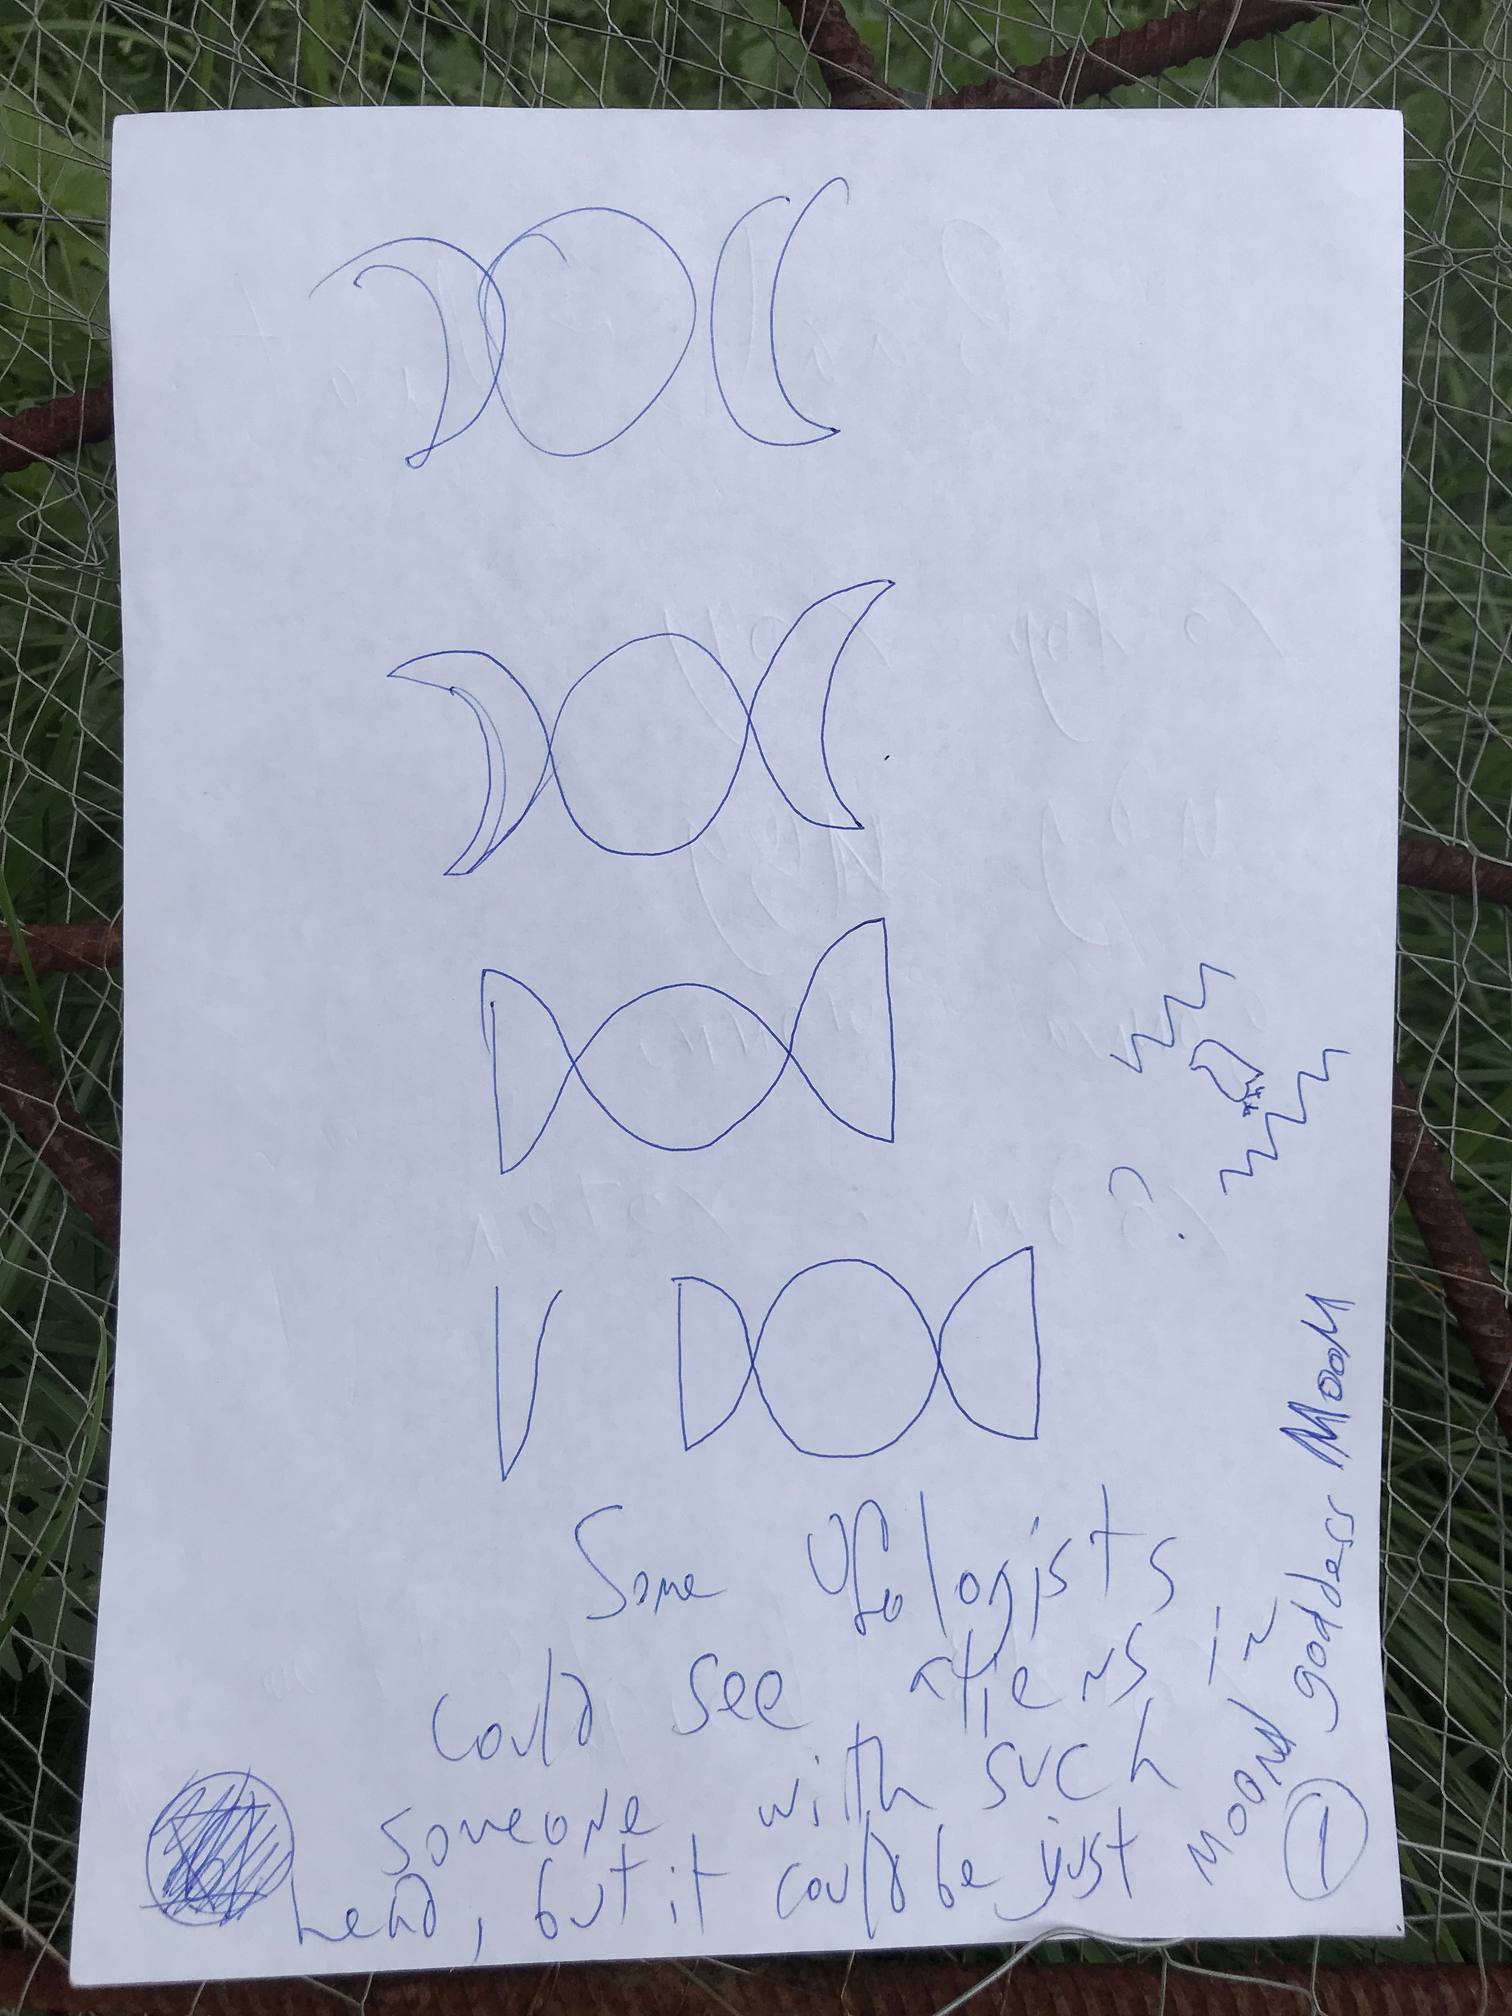 ?
Some Ufologists
could see aliens in
someone with such
head, but it could be just
MOON goddess MOOM
1